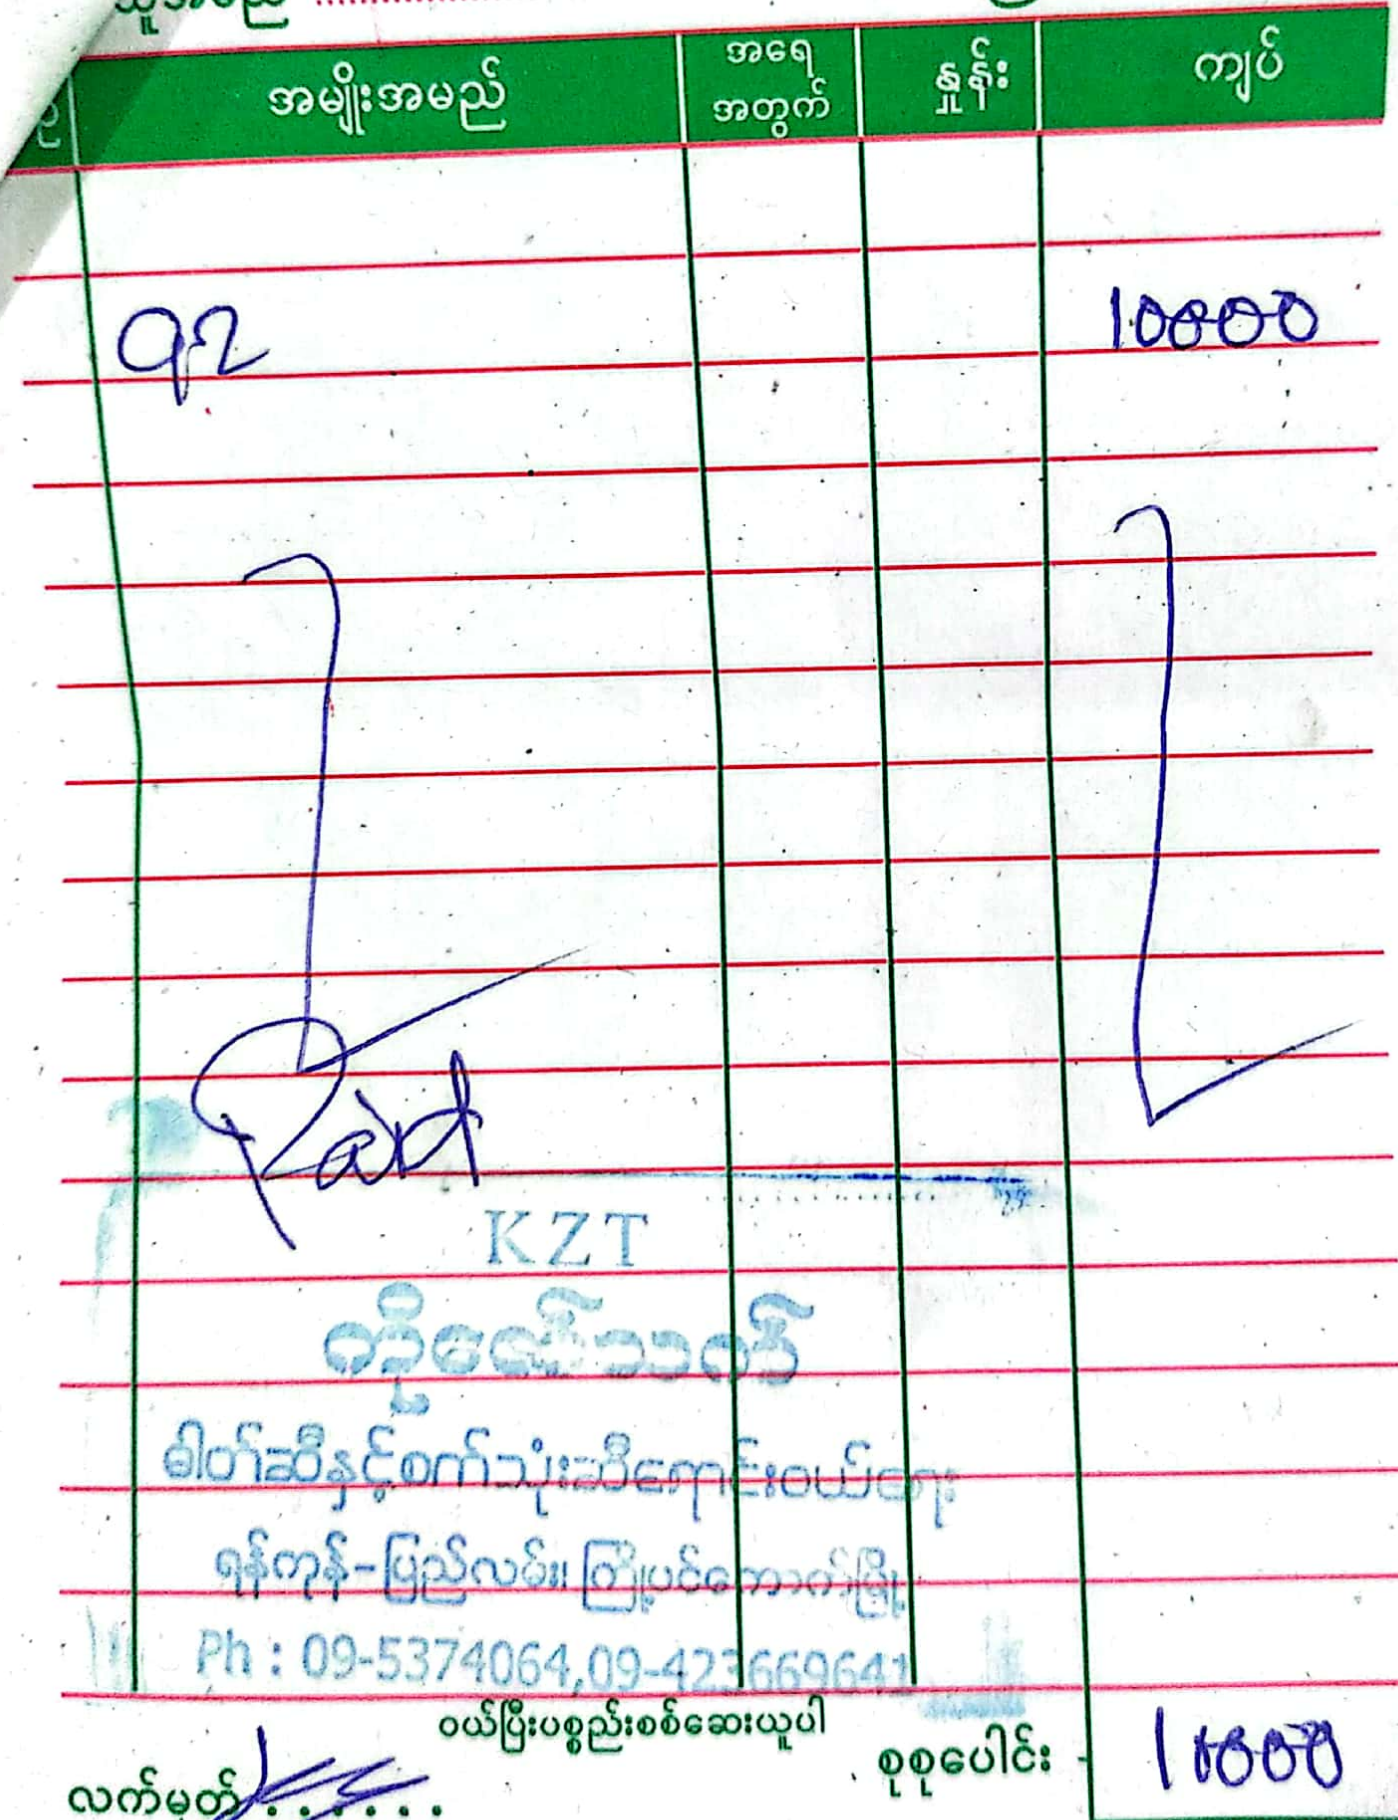 အမျိုးအမည် အရေအတွက် နှုန်း ကျပ်
92 10000
Paid
KZT
ကိုဇော်သက်
ဓါတ်ဆီနှင့်စက်သုံးဆီရောင်းဝယ်ရေး
ရန်ကုန်-ပြည်လမ်း၊ ကြို့ပင်ကောက်မြို့
Ph : 09-5374064,09-423669641
ဝယ်ပြီးပစ္စည်းစစ်ဆေးယူပါ
စုစုပေါင်း 10000
လက်မှတ်